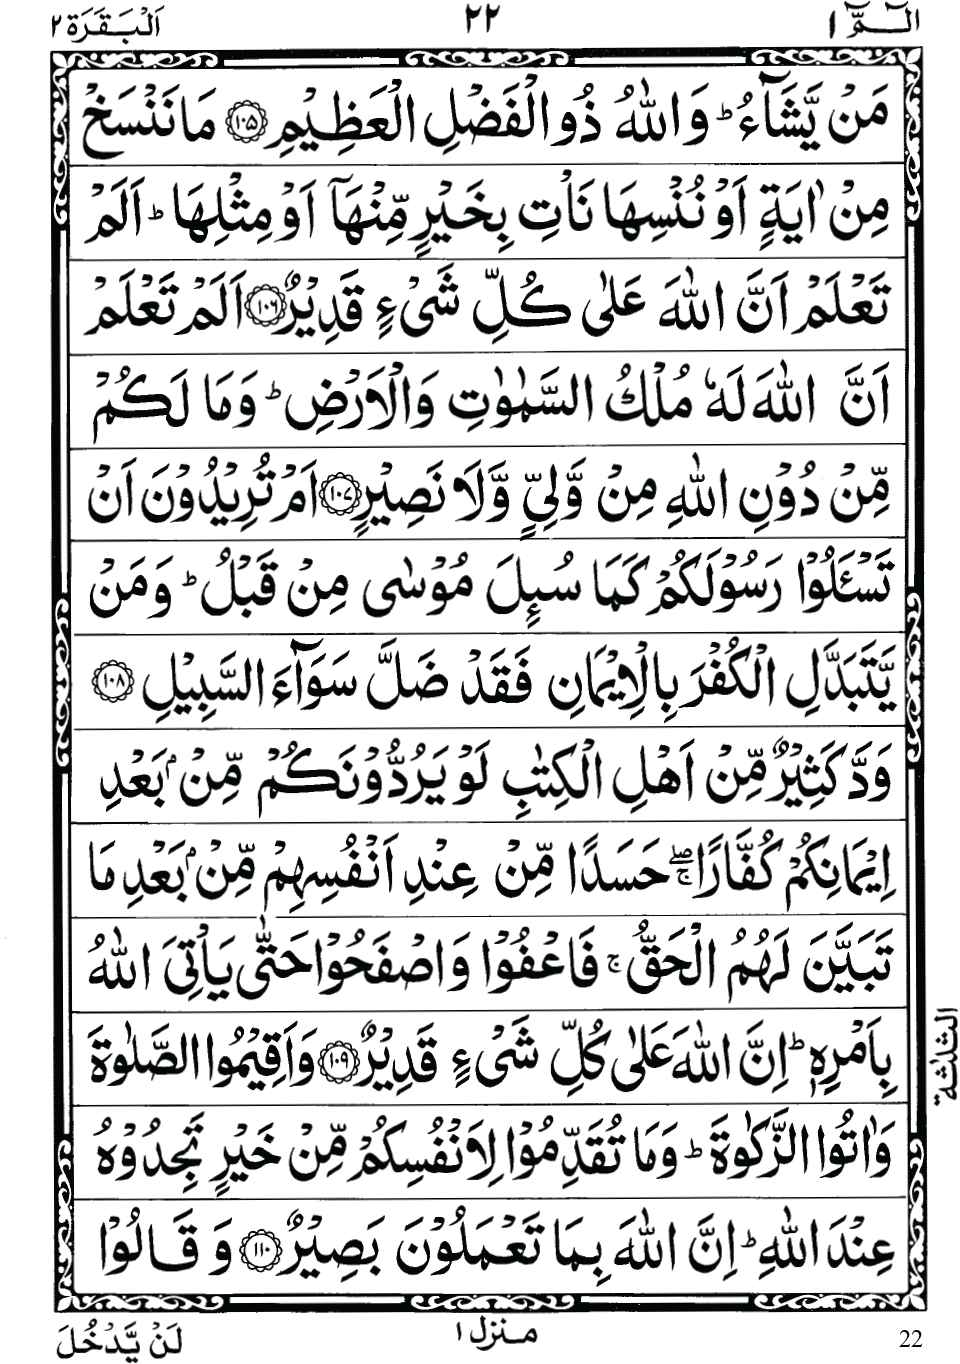 الٓـمّٓ ١
٢٢
اَلْبَقَرَة ٢
مَنْ يَّشَآءُ ؕ وَاللّٰهُ ذُو الْفَضْلِ الْعَظِيْمِ ﴿۱۰۵﴾ مَا نَنْسَخْ
مِنْ اٰيَةٍ اَوْ نُنْسِهَا نَاْتِ بِخَيْرٍ مِّنْهَآ اَوْ مِثْلِهَا ؕ اَلَمْ
تَعْلَمْ اَنَّ اللّٰهَ عَلٰى كُلِّ شَیْءٍ قَدِيْرٌ ﴿۱۰۶﴾ اَلَمْ تَعْلَمْ
اَنَّ اللّٰهَ لَهٗ مُلْكُ السَّمٰوٰتِ وَالْاَرْضِ ؕ وَمَا لَكُمْ
مِّنْ دُوْنِ اللّٰهِ مِنْ وَّلِیٍّ وَّلَا نَصِيْرٍ ﴿۱۰۷﴾ اَمْ تُرِيْدُوْنَ اَنْ
تَسْـَٔلُوْا رَسُوْلَكُمْ كَمَا سُىِٕلَ مُوْسٰى مِنْ قَبْلُ ؕ وَمَنْ
يَّتَبَدَّلِ الْكُفْرَ بِالْاِيْمَانِ فَقَدْ ضَلَّ سَوَآءَ السَّبِيْلِ ﴿۱۰۸﴾
وَدَّ كَثِيْرٌ مِّنْ اَهْلِ الْكِتٰبِ لَوْ يَرُدُّوْنَكُمْ مِّنْۢ بَعْدِ
اِيْمَانِكُمْ كُفَّارًا ۚۖ حَسَدًا مِّنْ عِنْدِ اَنْفُسِهِمْ مِّنْۢ بَعْدِ مَا
تَبَيَّنَ لَهُمُ الْحَقُّ ۚ فَاعْفُوْا وَاصْفَحُوْا حَتّٰى يَاْتِیَ اللّٰهُ
بِاَمْرِهٖ ؕ اِنَّ اللّٰهَ عَلٰى كُلِّ شَیْءٍ قَدِيْرٌ ﴿۱۰۹﴾ وَاَقِيْمُوا الصَّلٰوةَ
الثلٰثة
وَاٰتُوا الزَّكٰوةَ ؕ وَمَا تُقَدِّمُوْا لِاَنْفُسِكُمْ مِّنْ خَيْرٍ تَجِدُوْهُ
عِنْدَ اللّٰهِ ؕ اِنَّ اللّٰهَ بِمَا تَعْمَلُوْنَ بَصِيْرٌ ﴿۱۱۰﴾ وَقَالُوْا
22
منزل ١
لَنْ يَّدْخُلَ